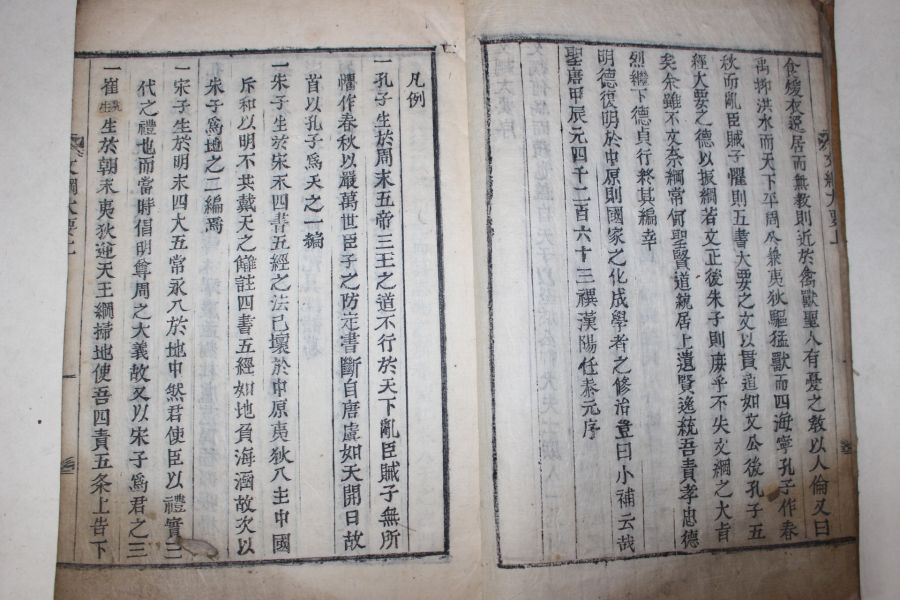 食煖衣逸居而無敎則近於禽獸聖人有憂之敎以人倫又曰
禹抑洪水而天下平周公兼夷狄驅猛獸而四海寧孔子作春
秋而亂臣賊子懼則五書大要之文以貫道如文公後孔子五
經大要之德以扳綱若文正後朱子則庶乎不失文綱之大旨
矣余雖不文奈綱常何聖賢道統居上遺賢逸統吾責孝忠德
烈繼下德貞行終其編幸
明德復明於中原則國家之化成學者之修治豈曰小補云哉
聖唐甲辰元四千二百六十三禩漢陽任泰元序
凡例
一孔子生於周末五帝三王之道不行於天下亂臣賊子無所
懼作春秋以嚴萬世臣子之防定書斷自唐虞如天開日故
首以孔子爲天之一編
一朱子生於宋末四書五經之法已壞於中原夷狄入主中國
斥和以明不共戴天之讎註四書五經如地負海涵故次以
朱子爲地之二編焉
一宋子生於明末四大五常永入於地中然君使臣以禮實三
代之禮也而當時倡明尊周之大義故又以宋子爲君之三
一崔先生生於朝末夷狄逆天王綱掃地使吾四責五条上告下
文綱大要上